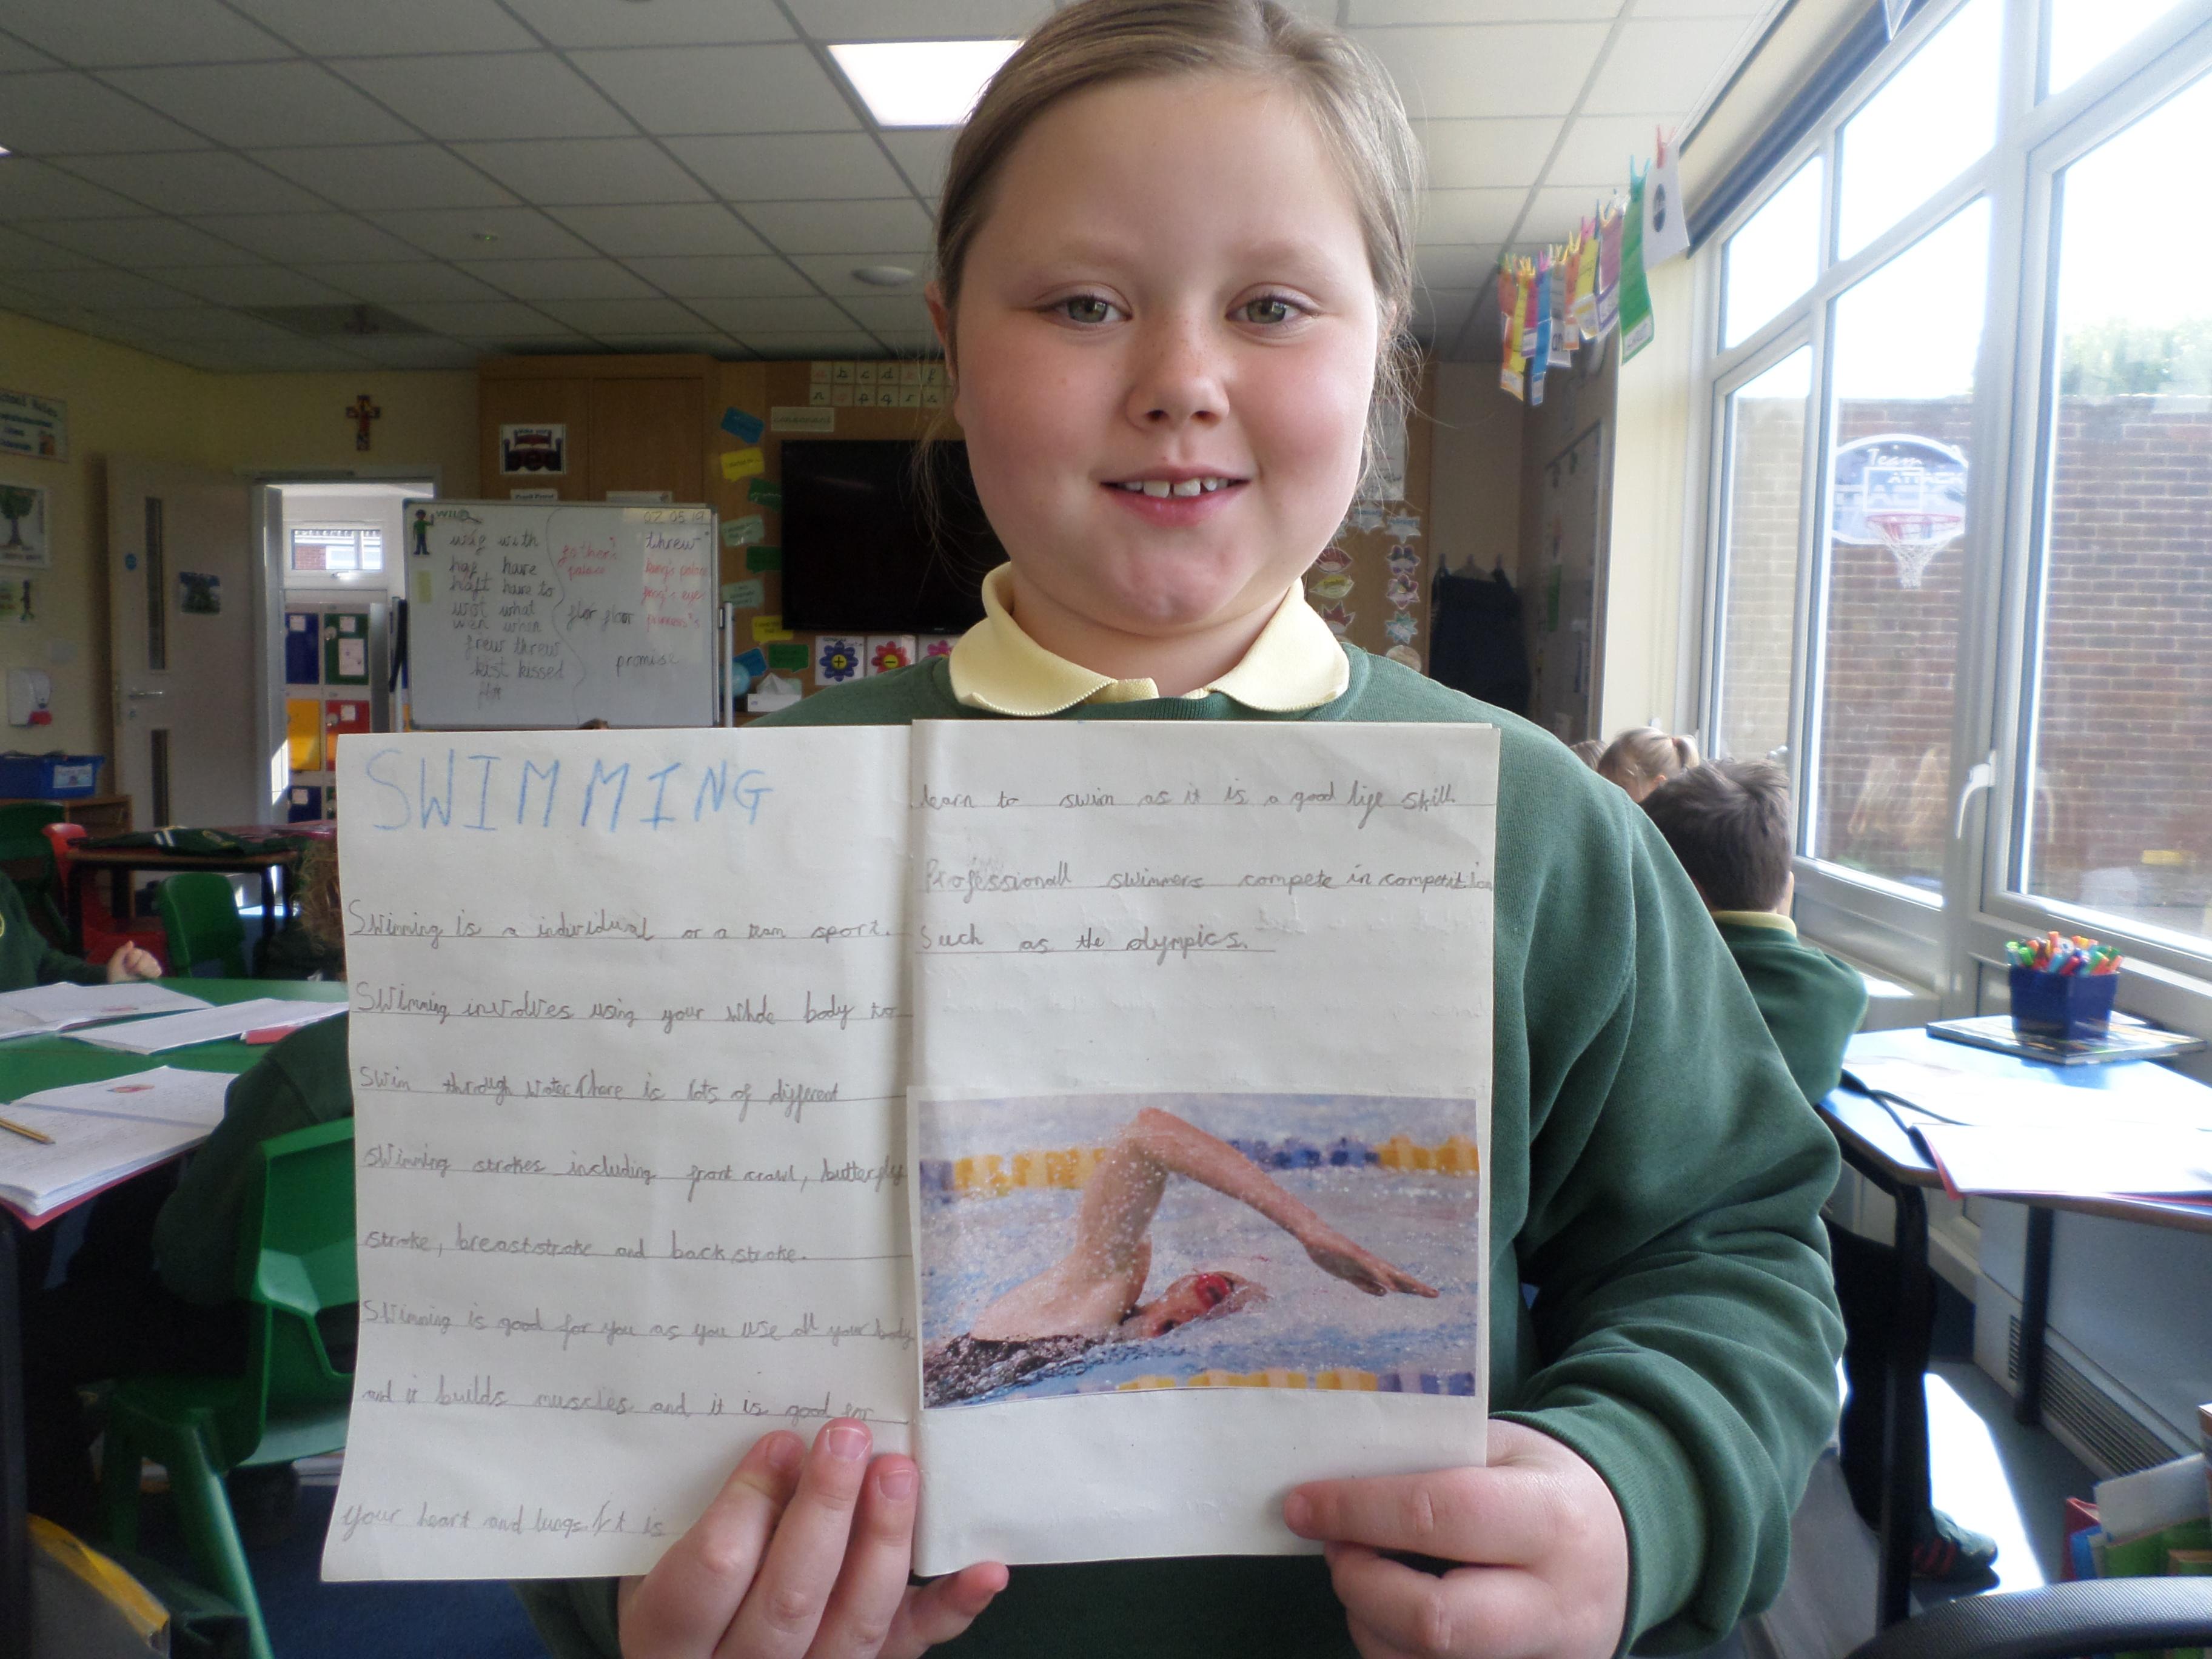 WILD
with
have
have to
what
when
threw
kist kissed
father's
palace
flor floor
promise
02.05.19
threw
king's palace
frog's eyes
princess's
Team
ATTACK
SWIMMING
Swimming is a individual or a team sport.
Swimming involves using your whole body to
swim through water. There is lots of different
swimming strokes including front crawl, butterfly
stroke, breaststroke and back stroke.
Swimming is good for you as you use all your body
and it builds muscles and it is good for
your heart and lungs. It is
learn to swim as it is a good life skill.
Professionall swimmers compete in competition
Such as the olympics.